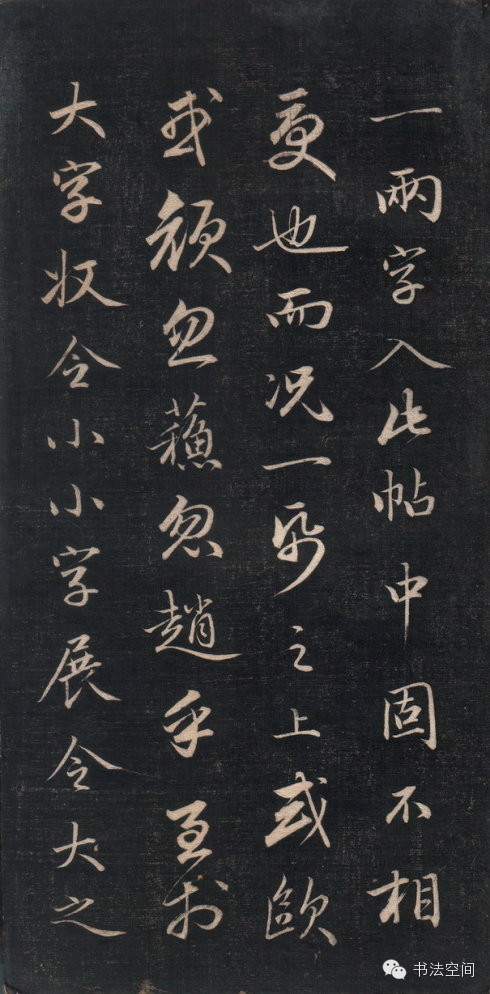 一兩字入此帖中固不相
也而况一之上或歐
或顔忽蘇忽趙乎至於
大字收令小小字展令大之
书法空间